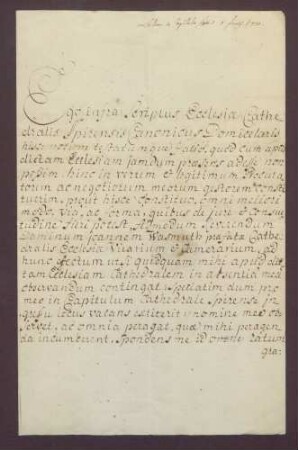 Ego infra scriptus Ecclesiæ Cathe
dralis Spirensis Canonicus Domicellaris
hisce notum testatumque facio, quod cum apud
dictam Ecclesiam jamdum præsens adesse non
possim, hinc in verum et legitimum Procura
torem ac negotiorum meorum gestorem consti
tuerim, prout hisce constituo, omni meliori
modo, via, ac forma, quibus de jure et consue
tudine fieri potest Admodum Reverendum
Dominum Joannem Wasmuth præfatæ Cathe
dralis Ecclesiæ Vicarium et Camerarium, ad
hunc effectum ut si quidquam mihi apud dic
tam Ecclesiam Cathedralem in absentia mea
observandum contingat, speciatim dum pro
me in Capitulum Cathedrale Spirense in
gressu locus vacans extiterit, nomine meo ob
servet, ac omnia peragat, quæ mihi peragen
da incumberent, spondens me id omne ratum
gra: